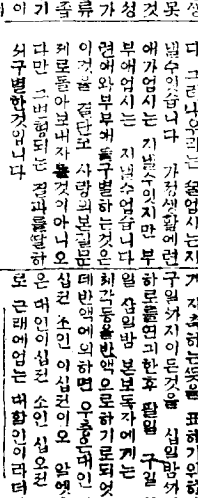 다 그러나우리는 술업시는지
낼수잇슴니다 가정생활에련
애가업시는 지낼수잇지만 부
부애업시는 지낼수업슴니다
련애와부부애를구별하는것은
이것을 결단코 사랑의본질문
제로돌아보내자는것이아니오
다만 그변형되는 결과를딸하
서구별한것임니다
게 자축하는뜻을 표하기위하
구일까지이든것을 십일방
하로를연긔한후 팔일 구일
일 삼일방 본보독자에게는
톄가등을반액으로하기로되엿
데반액에의하면 우층은대인
십전 소인 이십전이오 알에
은대인이십전 소인 십오전
로 근래에업는 대할인이라더